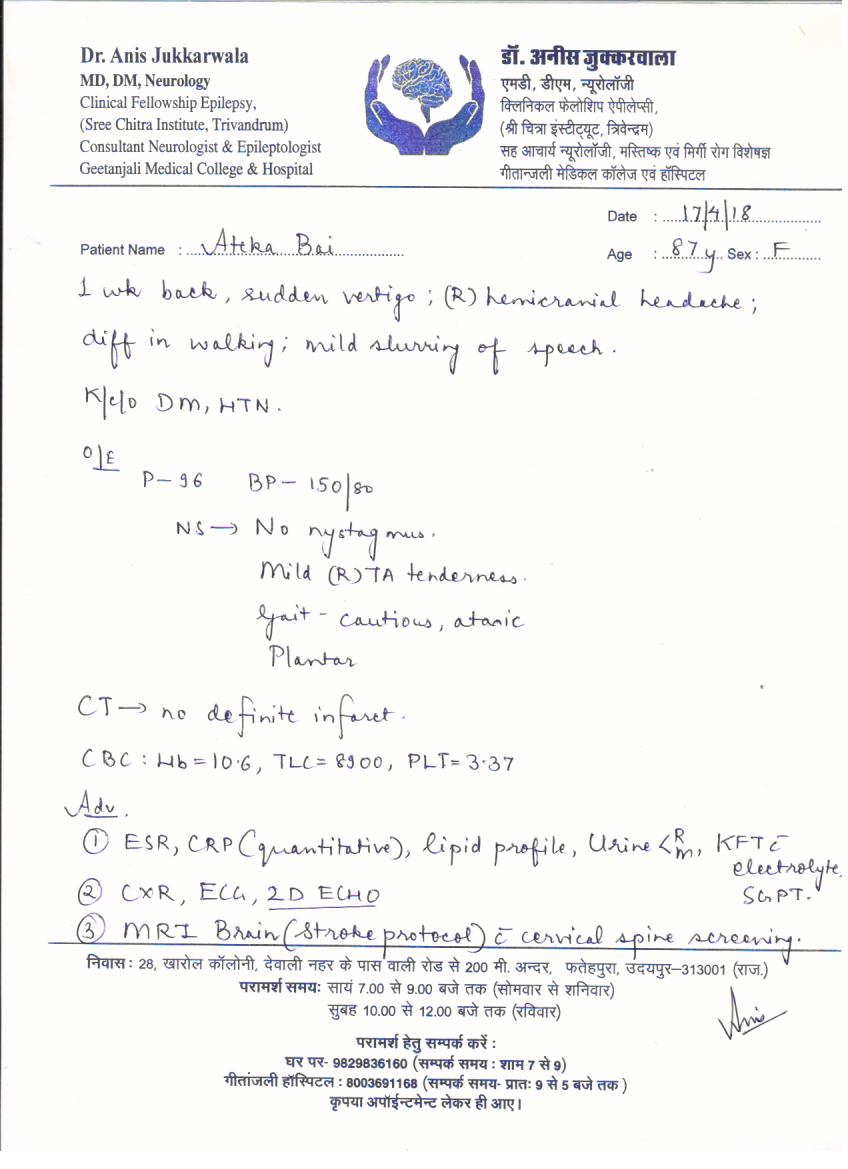 Dr. Anis Jukkarwala
MD, DM, Neurology
Clinical Fellowship Epilepsy,
(Sree Chitra Institute, Trivandrum)
Consultant Neurologist & Epileptologist
Geetanjali Medical College & Hospital
डॉ. अनीस जुक्करवाला
एमडी, डीएम, न्यूरोलॉजी
क्लिनिकल फेलोशिप ऐपीलेप्सी,
(श्री चित्रा इंस्टीट्यूट, त्रिवेन्द्रम)
सह आचार्य न्यूरोलॉजी, मस्तिष्क एवं मिर्गी रोग विशेषज्ञ
गीतान्जली मेडिकल कॉलेज एवं हॉस्पिटल
Date : 17/4/18
Patient Name : Ateka Bai
Age : 87 y Sex : F
1 wk back, sudden vertigo; (R) hemicranial headache;
diff in walking; mild slurring of speech.
K/c/o DM, HTN.
O/E
P-96 BP- 150/80
NS→ No nystagmus.
Mild (R) TA tenderness.
Gait - cautious, ataxic
Plantar
CT→ no definite infarct.
CBC: Hb=10.6, TLC=8900, PLT=3.37
Adv.
① ESR, CRP (quantitative), lipid profile, Urine < R M, KFT c̄
electrolyte,
SGPT.
② CXR, ECG, 2D ECHO
③ MRI Brain (Stroke protocol) c̄ cervical spine screening.
निवास: 28, खारोल कॉलोनी, देवाली नहर के पास वाली रोड से 200 मी. अन्दर, फतेहपुरा, उदयपुर-313001 (राज.)
परामर्श समय: सायं 7.00 से 9.00 बजे तक (सोमवार से शनिवार)
सुबह 10.00 से 12.00 बजे तक (रविवार)
Anis
परामर्श हेतु सम्पर्क करें :
घर पर- 9829836160 (सम्पर्क समय : शाम 7 से 9)
गीतांजली हॉस्पिटल : 8003691168 (सम्पर्क समय- प्रातः 9 से 5 बजे तक )
कृपया अपॉईन्टमेन्ट लेकर ही आए।